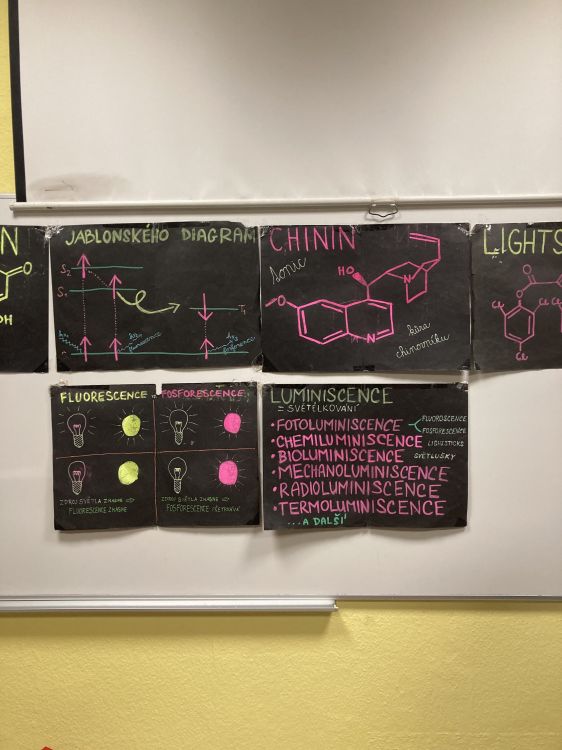 N
OH
O
JABLONSKÉHO DIAGRAM
S₂
S₁
T₁
hν₁
hν₂
fluorescence
hν₃
CHININ
Sonic
HO
N
O
N
kůra
chinovníku
LIGHTS
O
O
Cl
Cl
Cl
FLUORESCENCE
FOSFORESCENCE
ZDROJ SVĚTLA ZHASNE ⇒
FLUORESCENCE ZHASNE
ZDROJ SVĚTLA ZHASNE ⇒
FOSFORESCENCE PŘETRVÁVÁ
LUMINISCENCE
= SVĚTÉLKOVÁNÍ
• FOTOLUMINISCENCE
FLUORESCENCE
FOSFORESCENCE
• CHEMILUMINISCENCE LIGHTSTICKS
• BIOLUMINISCENCE SVĚTLUŠKY
• MECHANOLUMINISCENCE
• RADIOLUMINISCENCE
• TERMOLUMINISCENCE
...A DALŠÍ